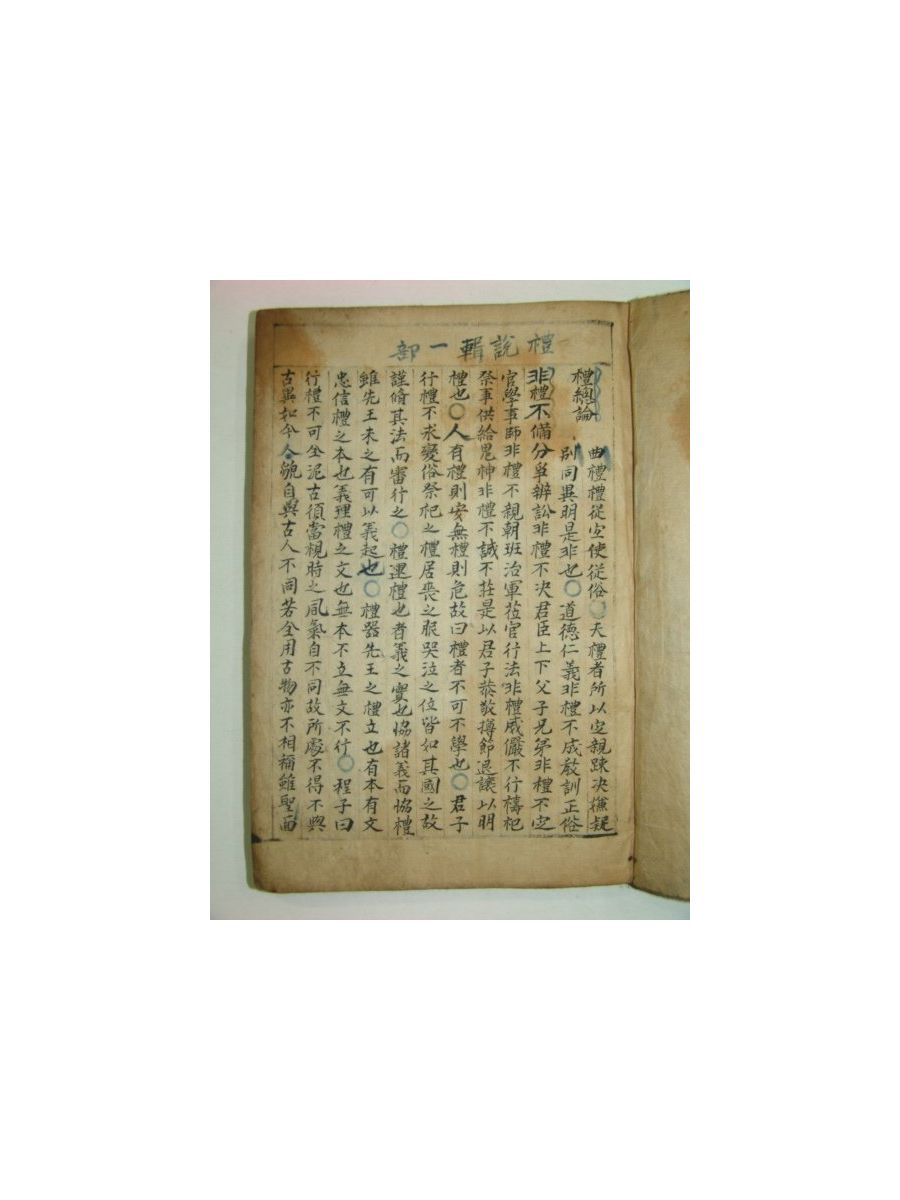 禮說輯一部
禮總論
曲禮禮從宜使從俗○夫禮者所以定親踈決嫌疑
別同異明是非也○道德仁義非禮不成敎訓正俗
非禮不備分爭辨訟非禮不決君臣上下父子兄弟非禮不定
官學事師非禮不親朝班治軍莅官行法非禮威儼不行禱祀
祭事供給鬼神非禮不誠不莊是以君子恭敬撙節退讓以明
禮也○人有禮則安無禮則危故曰禮者不可不學也○君子
行禮不求變俗祭祀之禮居喪之服哭泣之位皆如其國之故
謹脩其法而審行之○禮運禮也者義之實也協諸義而協禮
雖先王未之有可以義起也○禮器先王之禮立也有本有文
忠信禮之本也義理禮之文也無本不立無文不行○程子曰
行禮不可全泥古須當視時之風氣自不同故所處不得不與
古異如今人貌自與古人不同若全用古物亦不相稱雖聖而